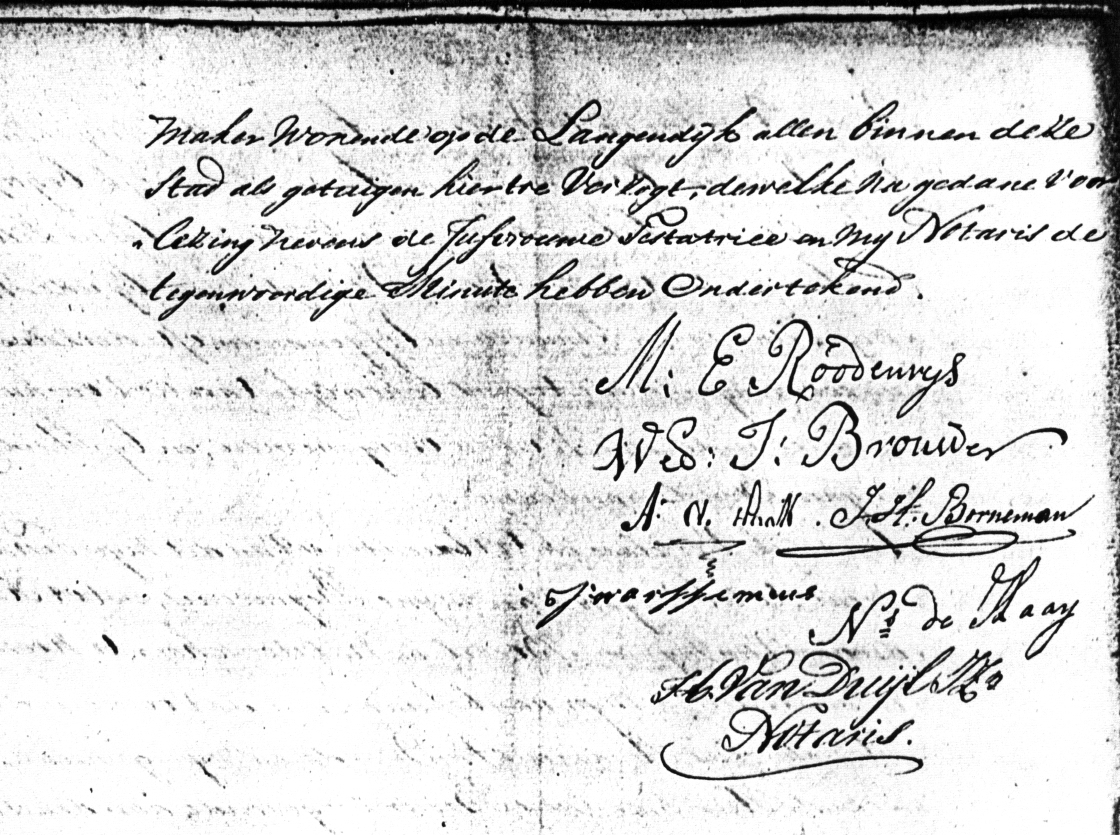 maker Wonende op de Langendijk allen binnen deze
Stad als getuigen hiertoe Verzogt, dewelke na gedane voor
"lezing nevens de Jufvrouwe Testatrice en my Notaris de
tegenwoordige Minute hebben Ondertekend.
M: E Roodenrys
Wed: J: Brouwer
A: v. J. H. Borneman
Ns de Raay
H. Van Duijl Hz
Notaris.